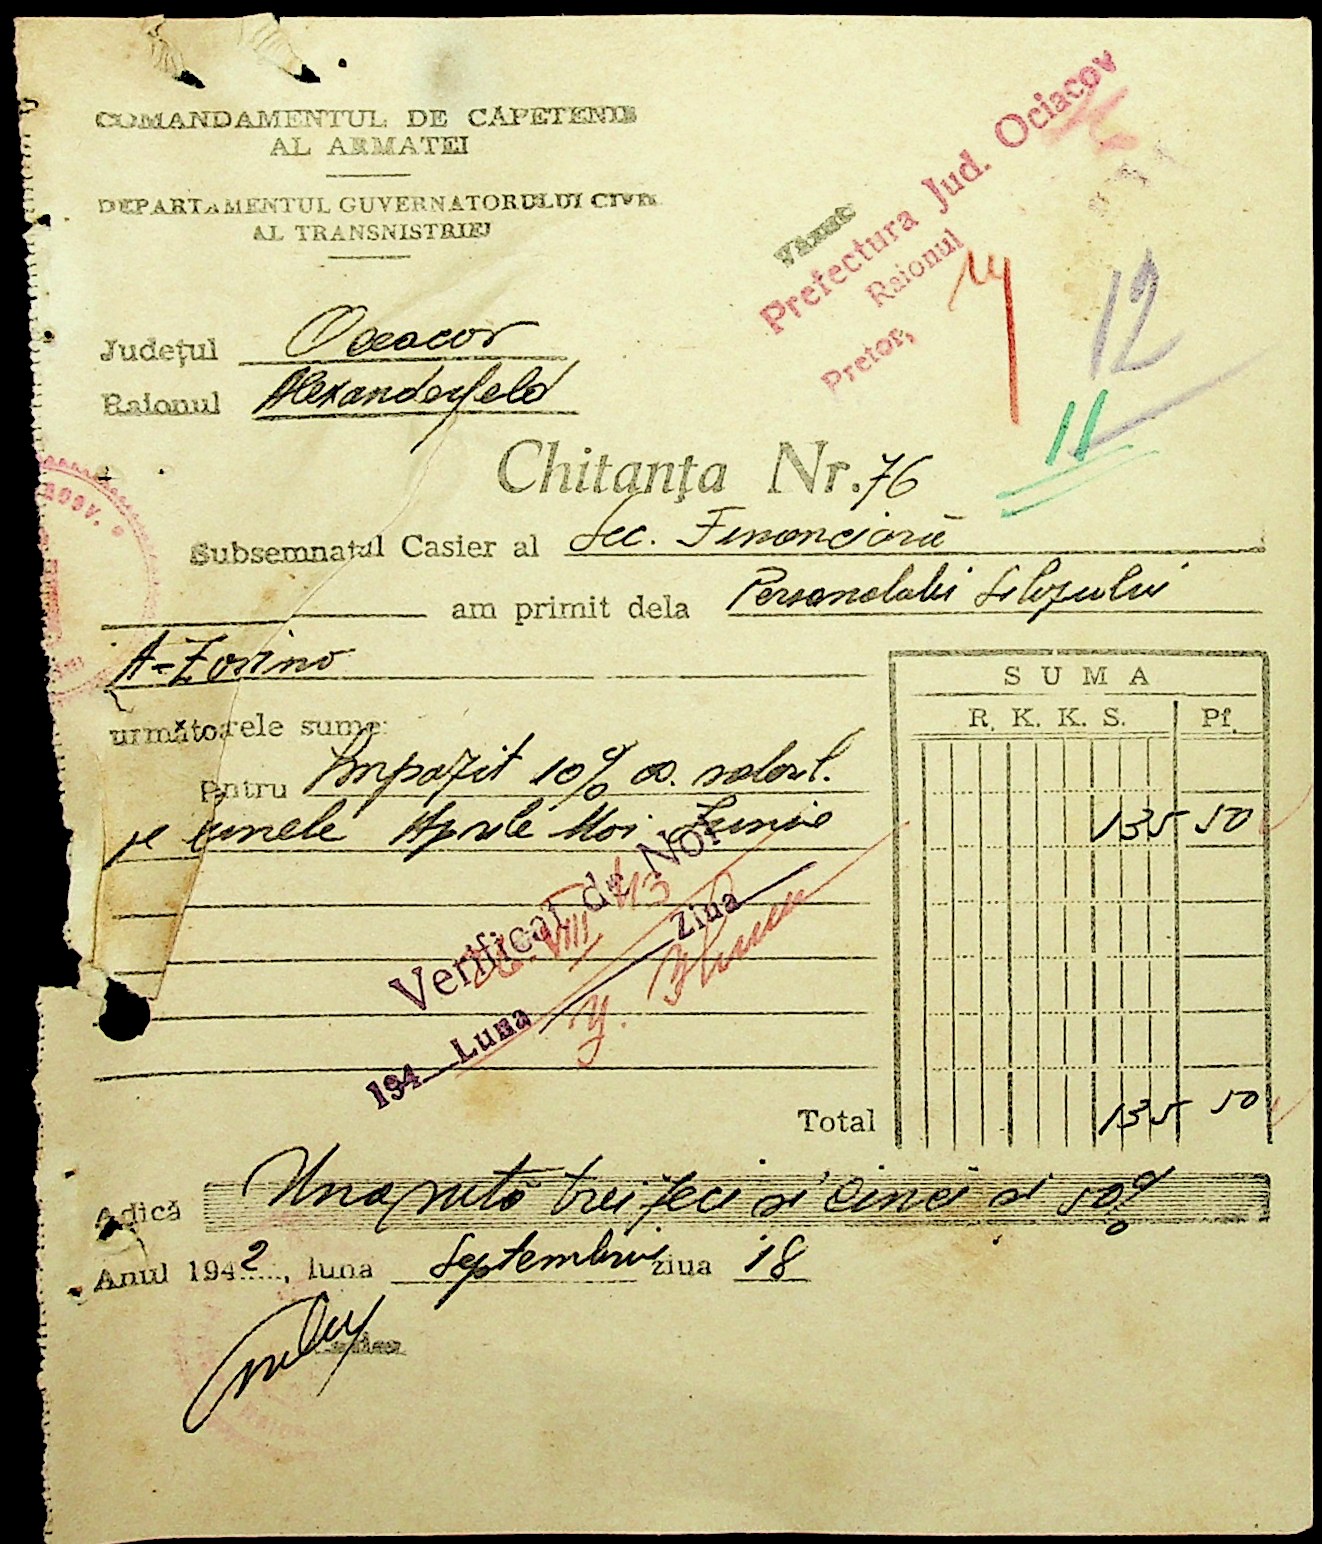 COMANDAMENTUL DE CAPETENIE
AL ARMATEI
DEPARTAMENTUL GUVERNATORULUI CIVIL
AL TRANSNISTRIEI
Văzut
Prefectura Jud. Ociacov
Raionul
Pretor,
12
11
Județul Oceacov
Raionul Alexanderfeld
Chitanţa Nr. 76
Subsemnatul Casier al Sec. Financiară
am primit dela Personalului Silozului
A-Zorino
următoarele sume:
SUMA
R. K. K. S. Pf.
pntru Impozit 10% as. salarul.
pe lunele Aprile Mai Junie 135 50
Verificat de Noi
26 VIII 43
194 Luna Ziua
Total 135 50
Adică Una sută trei zeci și cinci și 50%
Anul 1942, luna Septembrie ziua 18